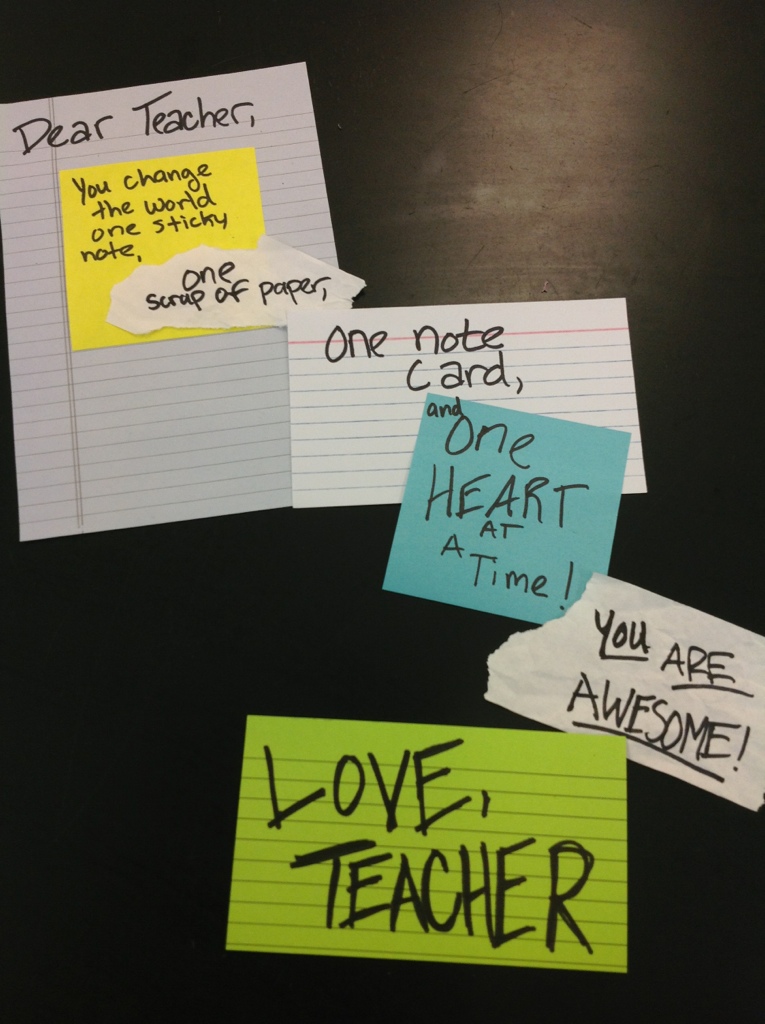 Dear Teacher,
You change
the world
one sticky
note,
one
scrap of paper,
One note
Card,
and
One
HEART
AT
A
Time!
You ARE
AWESOME!
LOVE,
TEACHER